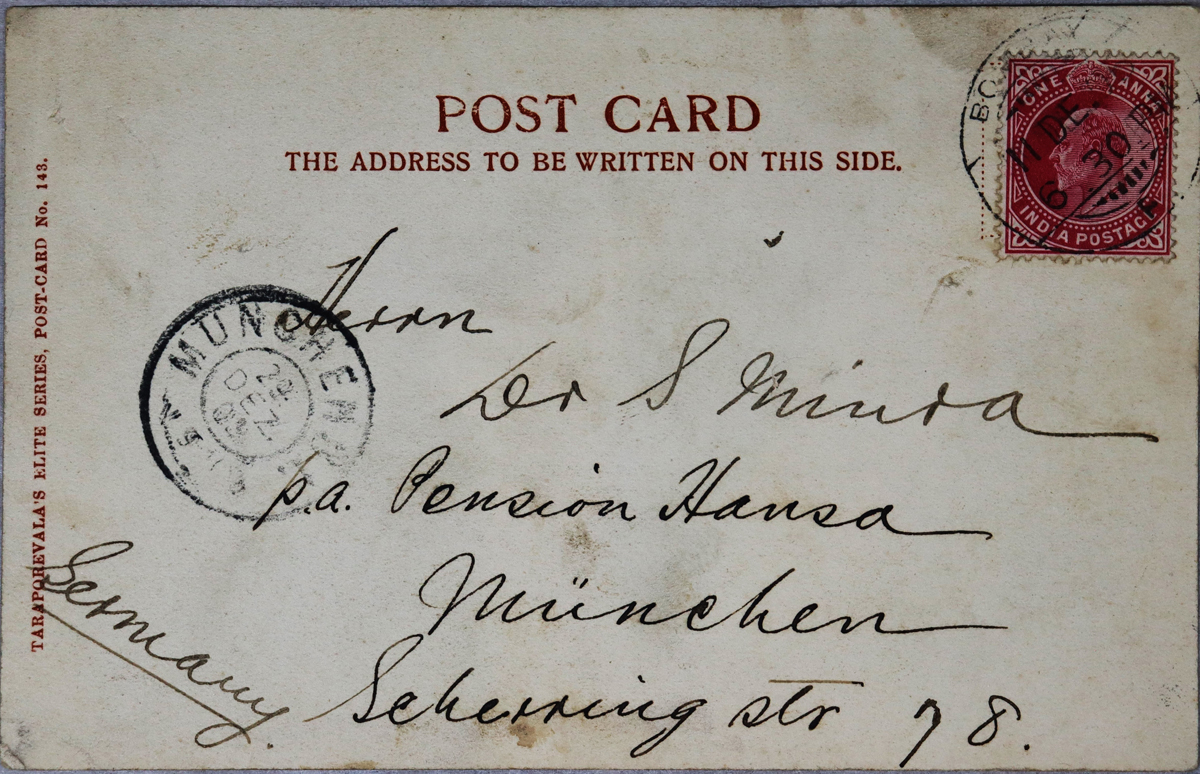 POST CARD
THE ADDRESS TO BE WRITTEN ON THIS SIDE.
ONE ANNA
INDIA POSTAGE
BOMBAY
17 DE.
6.30
F
TARAPOREVALA'S ELITE SERIES, POST-CARD No. 143.
MÜNCHEN
DEZ
Herrn
Dr S Miura
p.a. Pension Hansa
München
Scherring str 78.
Germany.